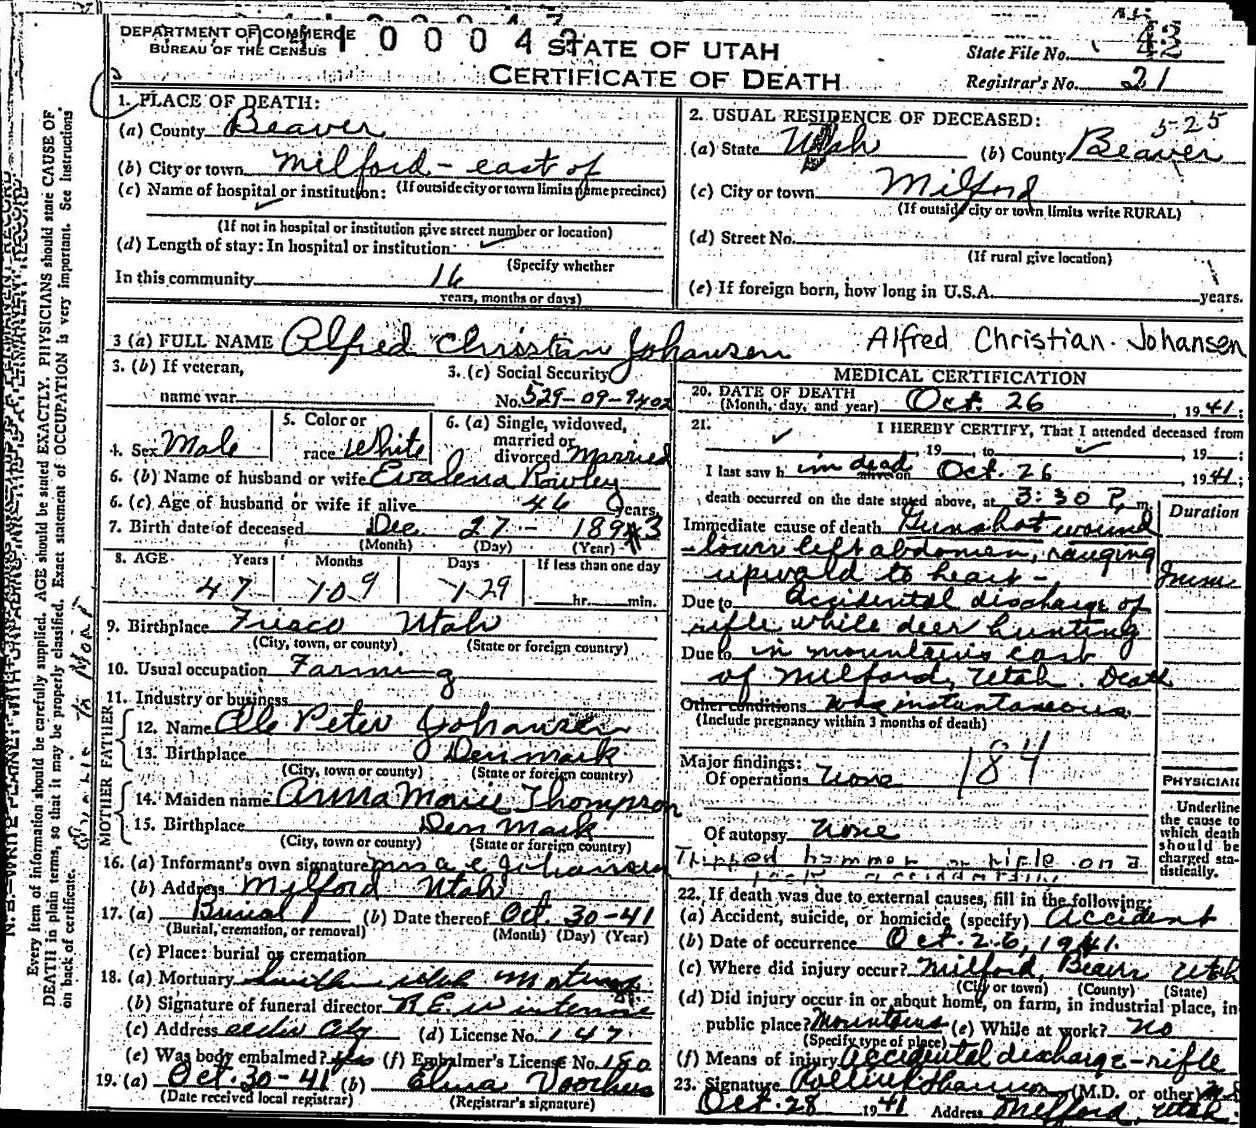 DEPARTMENT OF COMMERCE
BUREAU OF THE CENSUS
STATE OF UTAH
CERTIFICATE OF DEATH
State File No. 42
Registrar's No. 21
1. PLACE OF DEATH:
(a) County Beaver
(b) City or town Milford - east of
(c) Name of hospital or institution: (If outside city or town limits name precinct)
(If not in hospital or institution give street number or location)
(d) Length of stay: In hospital or institution
(Specify whether
In this community 16
years, months or days)
2. USUAL RESIDENCE OF DECEASED: 525
(a) State Utah (b) County Beaver
(c) City or town Milford
(If outside city or town limits write RURAL)
(d) Street No.
(If rural give location)
(e) If foreign born, how long in U.S.A. years.
3 (a) FULL NAME Alfred Christian Johansen Alfred Christian Johansen
3. (b) If veteran,
name war
3. (c) Social Security
No. 529-09-9402
4. Sex Male
5. Color or
race White
6. (a) Single, widowed,
married or
divorced Married
6. (b) Name of husband or wife Evalena Rowley
6. (c) Age of husband or wife if alive 46 years
7. Birth date of deceased Dec 27 - 1893
(Month) (Day) (Year)
8. AGE Years Months Days If less than one day
47 9 29 hr. min.
9. Birthplace Frisco Utah
(City, town, or county) (State or foreign country)
10. Usual occupation Farming
11. Industry or business
FATHER
12. Name Olle Peter Johansen
13. Birthplace Denmark
(City, town or county) (State or foreign country)
MOTHER
14. Maiden name Anna Marie Thompson
15. Birthplace Denmark
(City, town or county) (State or foreign country)
16. (a) Informant's own signature Mrs A. C. Johansen
(b) Address Milford Utah
17. (a) Burial (b) Date thereof Oct. 30-41
(Burial, cremation, or removal) (Month) (Day) (Year)
(c) Place: burial or cremation
18. (a) Mortuary Southern Utah Mortuary
(b) Signature of funeral director
(c) Address Cedar City (d) License No. 147
(e) Was body embalmed? yes (f) Embalmer's License No. 180
19. (a) Oct. 30-41 (b) Elma Voorhus
(Date received local registrar) (Registrar's signature)
MEDICAL CERTIFICATION
20. DATE OF DEATH
(Month, day, and year) Oct. 26, 1941;
21. I HEREBY CERTIFY, That I attended deceased from
, 19 , to , 19 ;
I last saw him dead Oct. 26 1941;
death occurred on the date stated above, at 3:30 P. m.
Duration
Immediate cause of death Gunshot wound
- lower left abdomen, ranging
upward to heart -
Imm
Due to accidental discharge of
rifle while deer hunting
Due to in mountains east
of Milford, Utah. Death
Other conditions was instantaneous
(Include pregnancy within 3 months of death)
Major findings:
Of operations None
184
Of autopsy None
Tripped hammer of rifle on a
rock accidentally
PHYSICIAN
Underline
the cause to
which death
should be
charged sta-
tistically.
22. If death was due to external causes, fill in the following:
(a) Accident, suicide, or homicide (specify) Accident
(b) Date of occurrence Oct. 26, 1941.
(c) Where did injury occur? Milford, Beaver Utah
(City or town) (County) (State)
(d) Did injury occur in or about home, on farm, in industrial place, in
public place? Mountains (e) While at work? no
(Specify type of place)
(f) Means of injury Accidental discharge - rifle
23. Signature (M.D. or other)
Oct. 28 1941 Address Milford, Utah.
Every item of information should be carefully supplied. AGE should be stated EXACTLY. PHYSICIANS should state CAUSE OF
DEATH in plain terms, so that it may be properly classified. Exact statement of OCCUPATION is very important. See Instructions
on back of certificate.